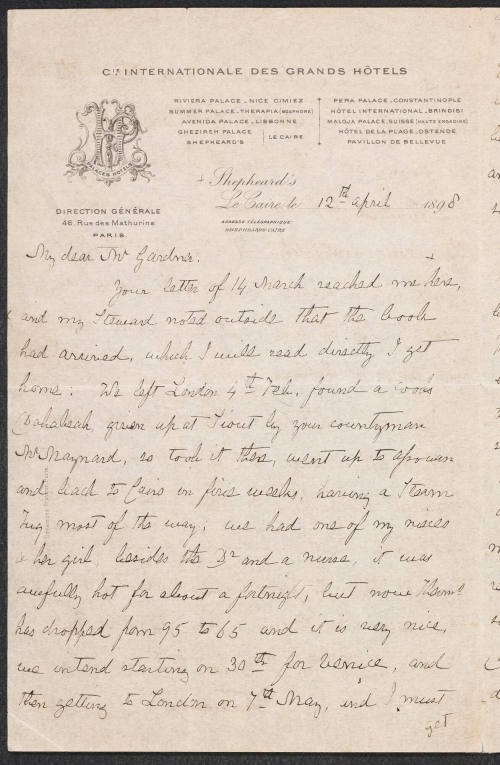 CIE INTERNATIONALE DES GRANDS HÔTELS
PALACES HOTELS
RIVIERA PALACE - NICE CIMIEZ
SUMMER PALACE - THERAPIA (BOSPHORE)
AVENIDA PALACE - LISBONNE
GHEZIREH PALACE
SHEPHEARD'S
LE CAIRE
PERA PALACE - CONSTANTINOPLE
HÔTEL INTERNATIONAL - BRINDISI
MALOJA PALACE, SUISSE (HAUTE ENGADINE)
HÔTEL DE LA PLAGE - OSTENDE
PAVILLON DE BELLEVUE
DIRECTION GÉNÉRALE
46, Rue des Mathurins
PARIS.
Shepheard's
Le Caire le 12th april 1898
ADRESSE TÉLÉGRAPHIQUE
SHEPHEARDS-CAIRE
My dear Mr Gardner.
Your letter of 14 March reached me here,
and my Steward noted outside that the book
had arrived, which I will read directly I get
home: We left London 4th Feb, found a Cooks
Dahabeah, given up at Siout by your countryman
Mr Maynard, so took it there, went up to Assouan
and back to Cairo in five weeks, having a Steam
Tug most of the way; we had one of my nieces
& her girl, besides the Dr and a nurse, it was
awfully hot for about a fortnight, but now Thermo
has dropped from 95 to 65 and it is very nice,
we intend starting on 30th for Venice, and
then getting to London on 7th May, and I must
yet